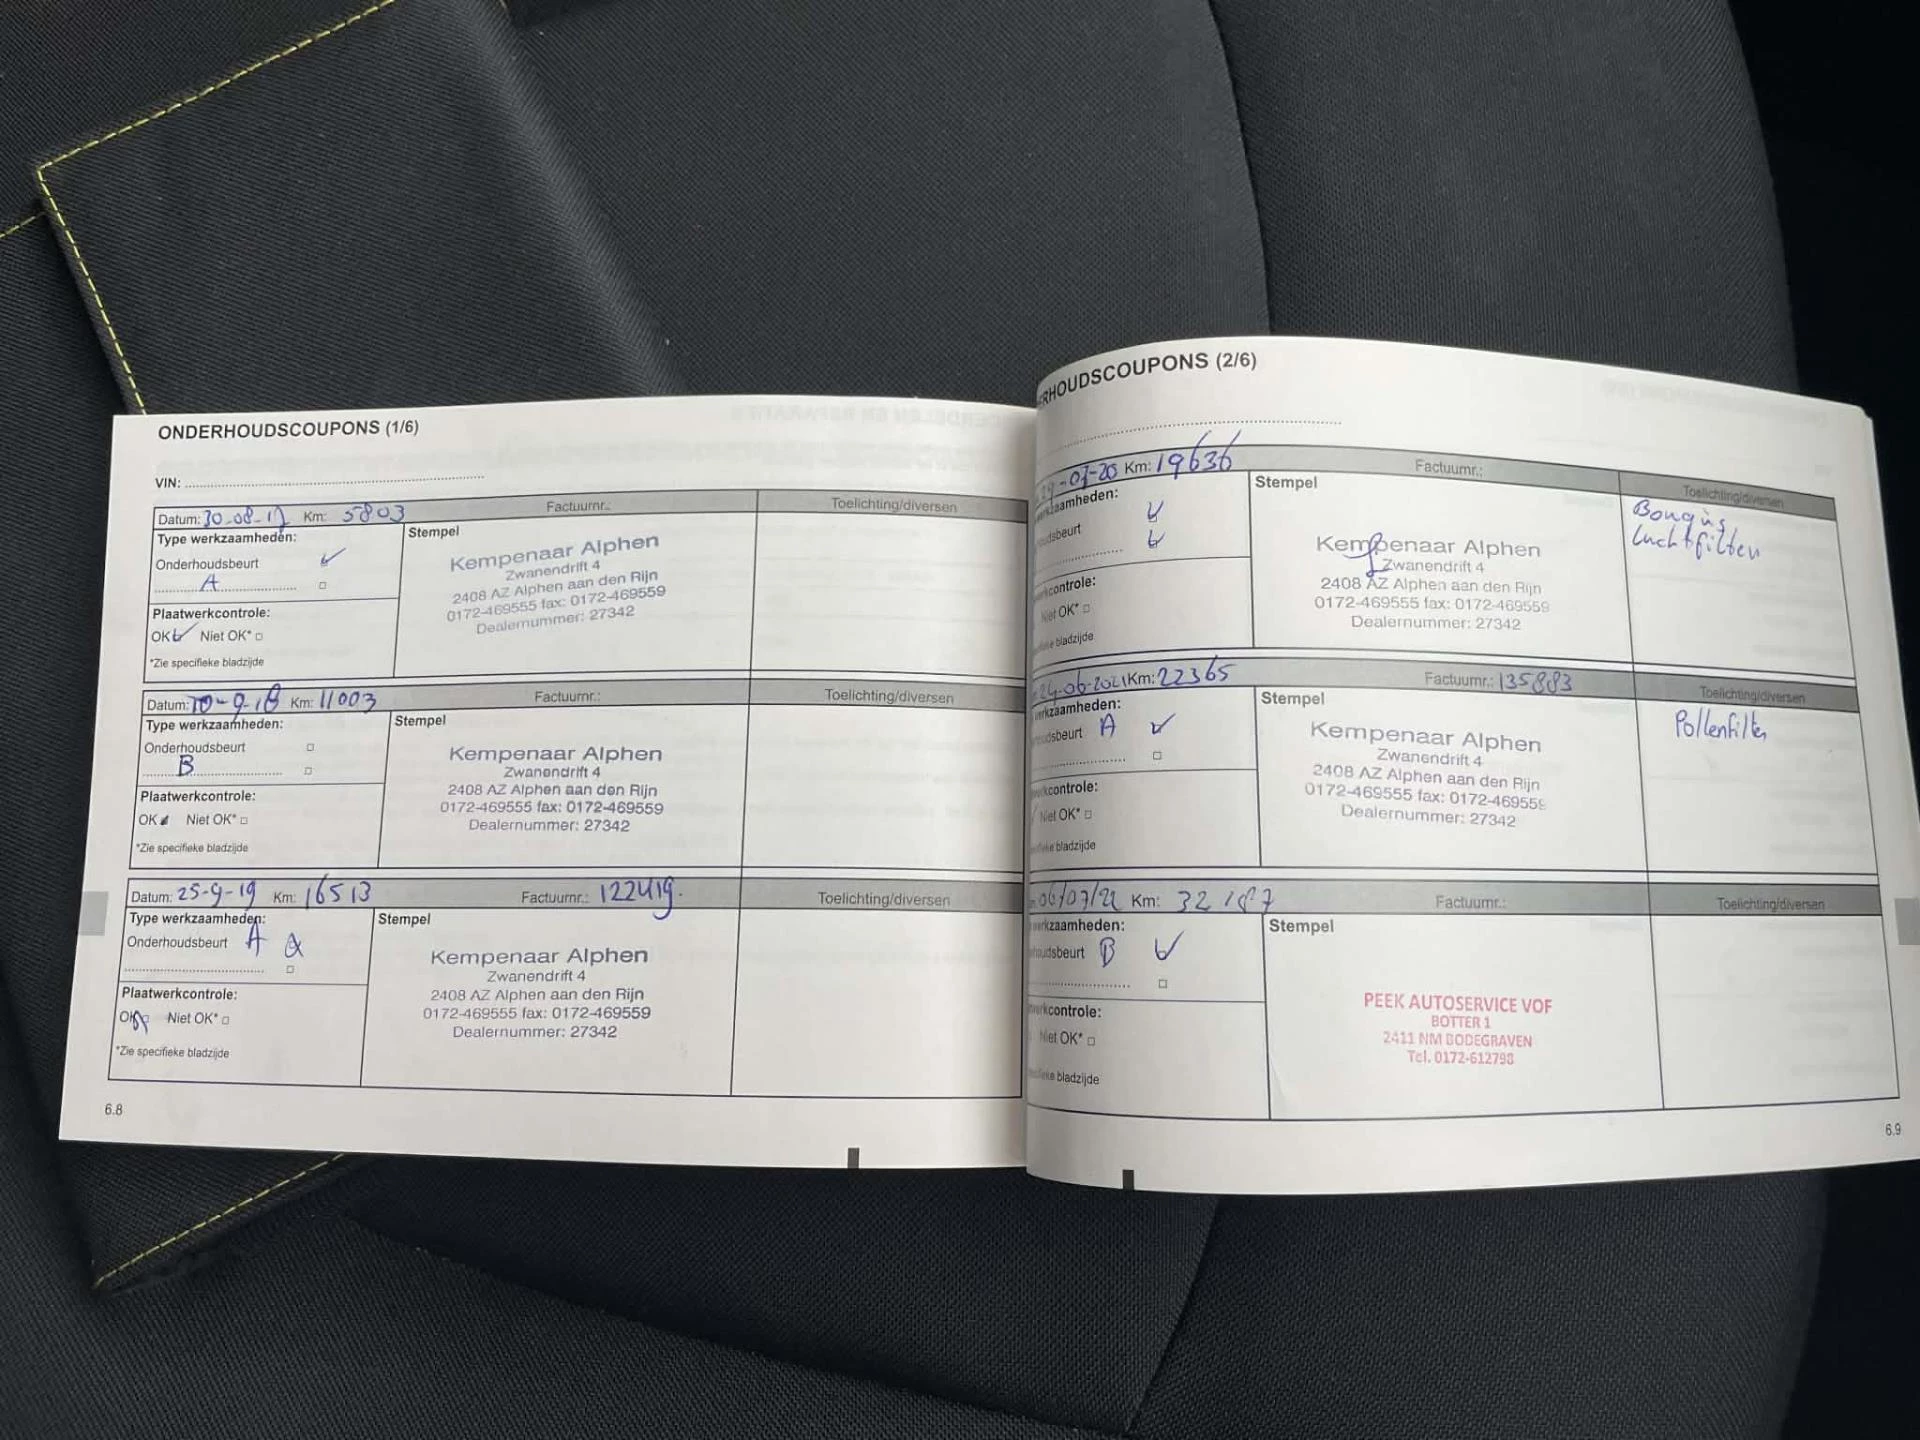 ONDERHOUDSCOUPONS (1/6)
VIN:
Datum: 30-08-17 Km: 5803 Factuurnr.: Toelichting/diversen
Type werkzaamheden:
Stempel
Onderhoudsbeurt
A
Plaatwerkcontrole:
OK Niet OK*
*Zie specifieke bladzijde
Kempenaar Alphen
Zwanendrift 4
2408 AZ Alphen aan den Rijn
0172-469555 fax: 0172-469559
Dealernummer: 27342
Datum: 10-9-18 Km: 11003 Factuurnr.: Toelichting/diversen
Type werkzaamheden:
Stempel
Onderhoudsbeurt
B
Plaatwerkcontrole:
OK Niet OK*
*Zie specifieke bladzijde
Kempenaar Alphen
Zwanendrift 4
2408 AZ Alphen aan den Rijn
0172-469555 fax: 0172-469559
Dealernummer: 27342
Datum: 25-9-19 Km: 16513 Factuurnr.: 122419. Toelichting/diversen
Type werkzaamheden:
Stempel
Onderhoudsbeurt A
Plaatwerkcontrole:
OK Niet OK*
*Zie specifieke bladzijde
Kempenaar Alphen
Zwanendrift 4
2408 AZ Alphen aan den Rijn
0172-469555 fax: 0172-469559
Dealernummer: 27342
6.8
ERHOUDSCOUPONS (2/6)
-07-20 Km: 19636 Factuurnr.: Toelichting/diversen
werkzaamheden:
Stempel
dsbeurt
controle:
Niet OK*
bladzijde
Kempenaar Alphen
Zwanendrift 4
2408 AZ Alphen aan den Rijn
0172-469555 fax: 0172-469559
Dealernummer: 27342
Bougies,
luchtfilter
24-06-2021 Km: 22365 Factuurnr.: 135883 Toelichting/diversen
werkzaamheden:
Stempel
dsbeurt A
controle:
Niet OK*
bladzijde
Kempenaar Alphen
Zwanendrift 4
2408 AZ Alphen aan den Rijn
0172-469555 fax: 0172-469559
Dealernummer: 27342
Pollenfilter
06/07/22 Km: 32187 Factuurnr.: Toelichting/diversen
werkzaamheden:
Stempel
houdsbeurt B
werkcontrole:
Niet OK*
bladzijde
PEEK AUTOSERVICE VOF
BOTTER 1
2411 NM BODEGRAVEN
Tel. 0172-612798
6.9